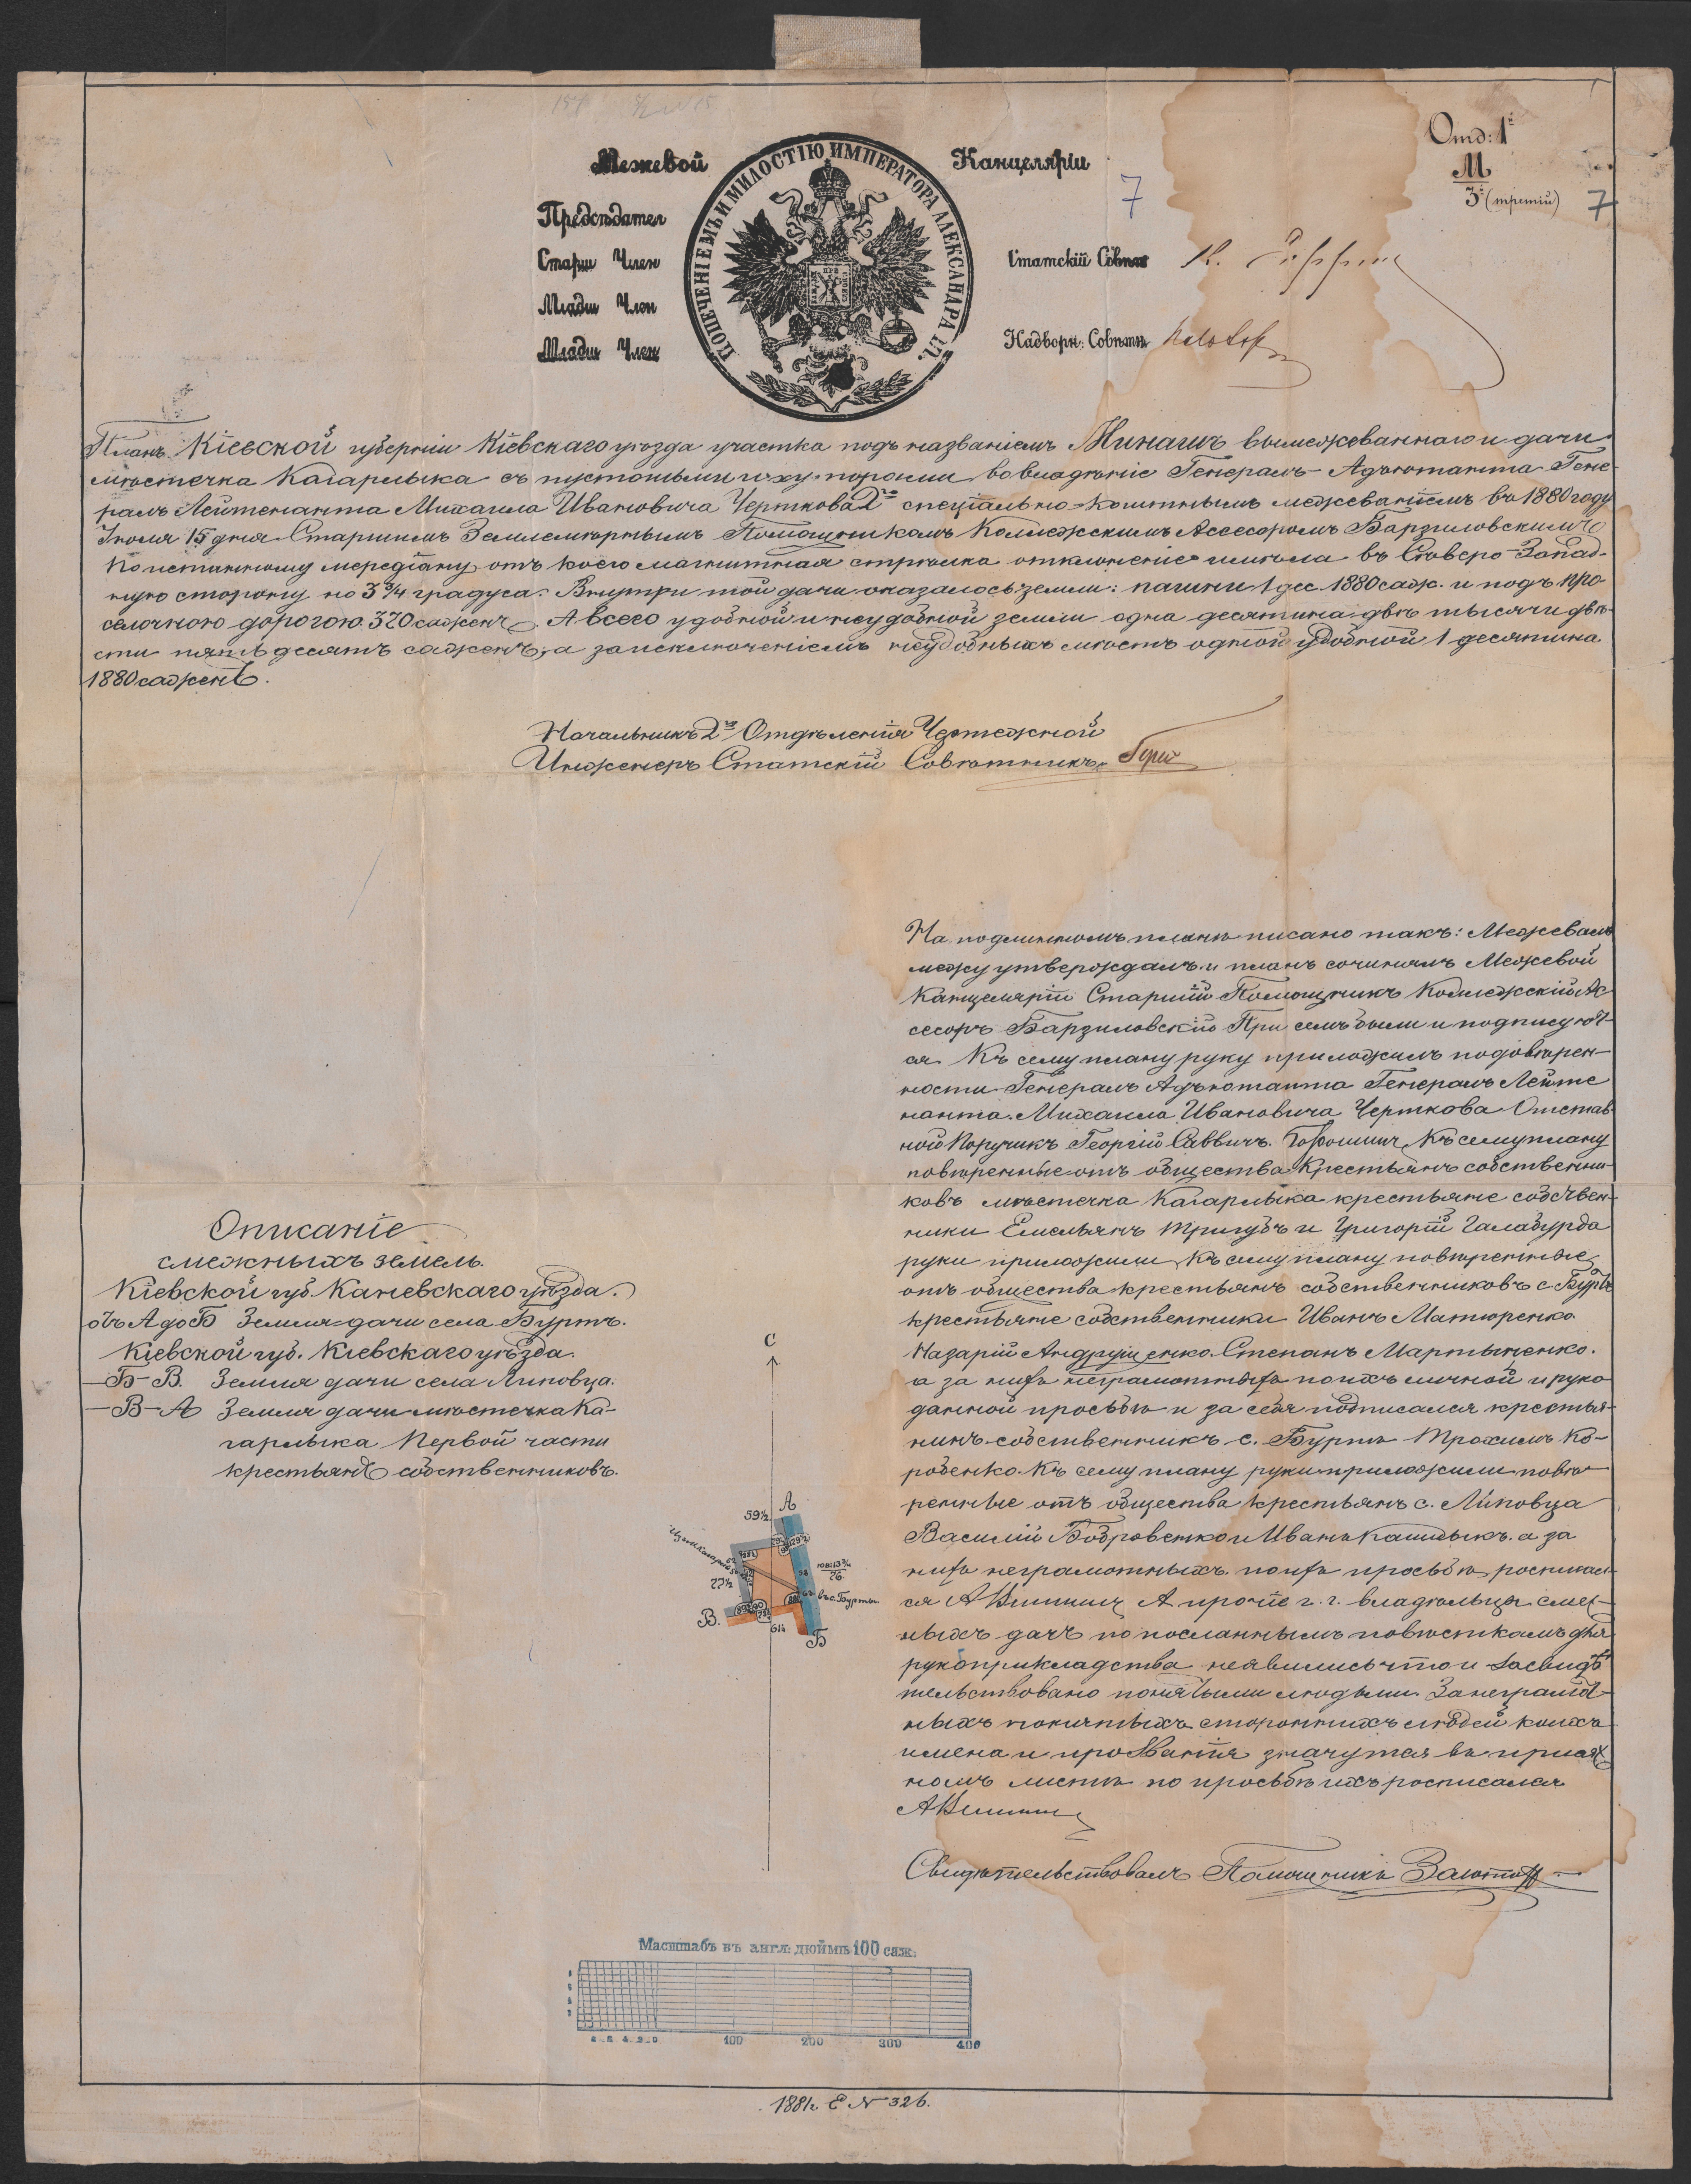 Отд: 1й
М
3й (третій) 7
7
Межевой Канцеляріи
ПОПЕЧЕНІЕМЪ И МИЛОСТІЮ ИМПЕРАТОРА АЛЕКСАНДРА II.
Председател
Старш Член Статскій Совет
Младш Член
Младш Член Надворн: Советн
Планъ Кіевской губерніи Кіевскаго уѣзда участка подъ названіемъ вымежеваннаго и дачи
мѣстечка Кагарлыка съ пустошьми и хуторами во владѣніе Генералъ-Адъютанта Гене-
ралъ Лейтенанта Михаила Ивановича Черткова 2го спеціально-коштнымъ межеваніемъ въ 1880 году
Іюля 15 дня Старшимъ Землемѣрнымъ Помощникомъ Коллежскимъ Ассесоромъ Барзиловскимъ
по истинному меридіану, отъ коего магнитная стрѣлка отклоненіе имѣла въ Сѣверо-Запад-
ную сторону на 3 3/4 градуса. Внутри той дачи оказалось земли: пашни 1 дес. 1880 саж. и подъ про-
селочною дорогою 370 саженъ. А всего удобной и неудобной земли одна десятина двѣ тысячи двѣ-
сти пятьдесятъ саженъ, а за исключеніемъ неудобныхъ мѣстъ одной удобной 1 десятина
1880 саженъ.
Начальникъ 2го Отдѣленія Чертежной
Инженеръ Статскій Совѣтникъ
На подлинномъ планѣ писано такъ: Межевалъ
межу утверждалъ и планъ сочинялъ Межевой
Канцеляріи Старшій Помощникъ Коллежскій Ас-
сесоръ Барзиловскій При семъ были и подписуют-
ся. Къ сему плану руку приложилъ по довѣрен-
ности Генералъ Адъютанта Генералъ Лейте
нанта Михаила Ивановича Черткова Отстав-
ной Поручикъ Георгій Саввичъ. Къ сему плану
повѣренные отъ общества Крестьянъ собственни-
ковъ мѣстечка Кагарлыка крестьяне собствен-
ники Емельянъ Тригубъ и Григорій Галабурда
руки приложили Къ сему плану повѣренные
отъ общества крестьянъ собственниковъ с. Буртъ
крестьяне собственники Иванъ Матюренко
Назарій Андрущенко Степанъ Мартыненко.
а за нихъ неграмотныхъ по ихъ личной и руко
данной просьбѣ и за себя подписался крестья-
нинъ собственникъ с. Буртъ Трохимъ Ко-
робенко. Къ сему плану руки приложили повѣ-
ренные отъ общества крестьянъ с. Липовца
Василій Бобровенко и Иванъ а за
нихъ неграмотныхъ по ихъ просьбѣ росписал-
ся А прочіе г. г. владѣльцы смеж-
ныхъ дачъ по посланнымъ повѣсткамъ для
рукоприкладства неявились что и засвидѣ-
тельствовано понятыми людьми. За неграмот-
ныхъ понятыхъ стороннихъ людей коихъ
имена и прозванія значутся въ присяж-
номъ листѣ по просьбѣ ихъ росписался
Свидѣтельствовалъ Помощникъ
Описаніе
смежныхъ земель.
Кіевской губ. Каневскаго уѣзда.
отъ А до Б Земля дачи села Буртъ.
Кіевской губ. Кіевскаго уѣзда.
— Б-В. Земля дачи села Липовца.
— В-А Земля дачи мѣстечка Ка-
гарлыка Первой части
крестьянъ собственниковъ.
С
А
59½
27½
В.
въ с. Бурты
61½
Б
Масштабъ въ англ: дюймѣ 100 саж.
100 200 300 400
1881г. Е № 326.